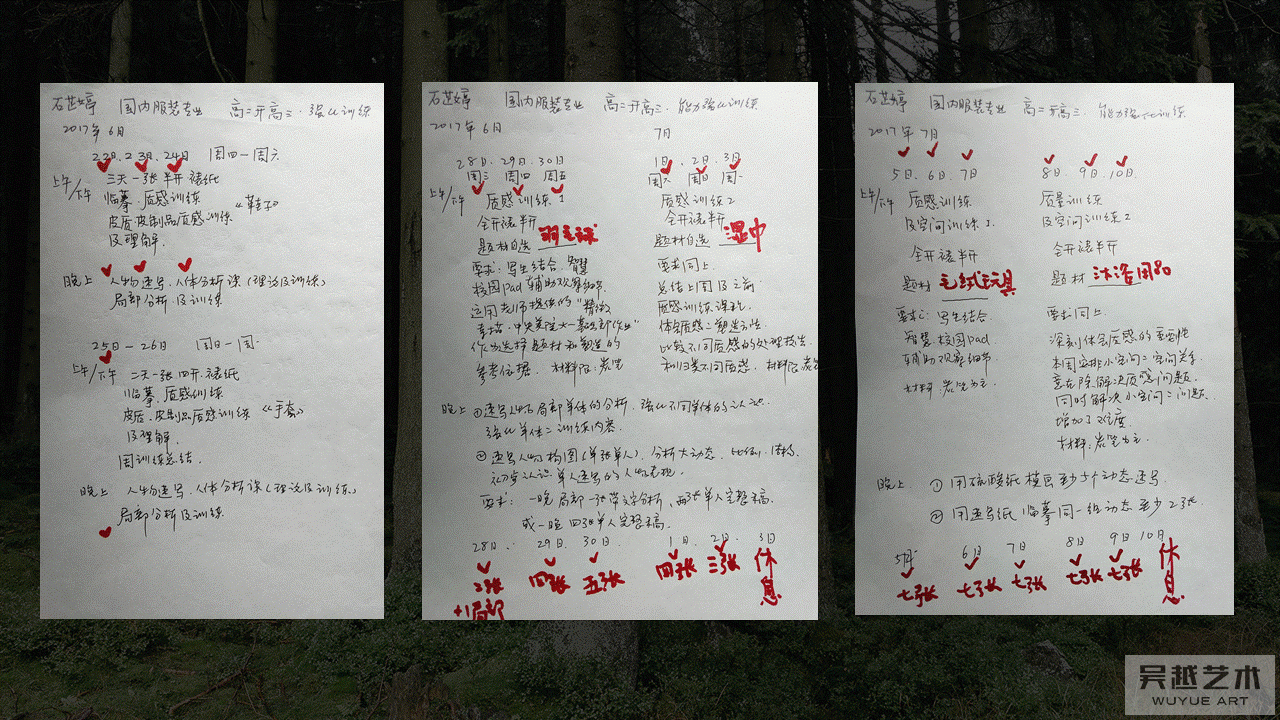 石芷婷 国内服装专业 高二开高三·强化训练
2017年6月
22日.23日.24日 周四一周六
上午/下午 三天一张半开裱纸
临摹.质感训练
皮质.皮制品质感训练《鞋子》
及理解.
晚上 人物速写.人体分析课(理论及训练)
局部分析及训练
25日—26日 周日一周一
上午/下午 二天一张四开裱纸
临摹.质感训练
皮质.皮制品质感训练《手套》
及理解.
周训练总结.
晚上 人物速写.人体分析课(理论及训练)
局部分析及训练
石芷婷 国内服装专业 高二开高三.能力强化训练
2017年6月 7月
28日.29日.30日
周三 周四 周五
上午/下午 质感训练1
全开裱半开
题材自选 羽毛球
要求:写生结合.智慧
校园pad辅助观察细节.
运用老师提供的"精微
素描·中央美院大一基础部作业"
作为选择题材和塑造的
参考依据. 材料限:炭笔
1日.2日.3日
周六 周日 周一
质感训练2
全开裱半开
题材自选 湿巾
要求同上.
总结上周及之前
质感训练课程.
体会质感二塑造方法.
比较不同质感的处理技法.
和归类不同质感. 材料限:炭笔
晚上 ①速写人物局部单体的分析.强化不同单体的认识.
强化单体二训练内容.
②速写人物构图(单张单人).分析大动态.比例.结构.
初步认识单人速写的人物表现.
要求:一晚局部一张带文字分析,两张单人完整稿.
或一晚四张单人完整稿.
28日. 29日. 30日. 1日. 2日. 3日
2张 四张 五张 四张 三张 休息
+1局部
石芷婷 国内服装专业 高二开高三.能力强化训练
2017年7月
5日.6日.7日
上午/下午 质感训练
及空间训练1.
全开裱半开
题材 毛绒玩具
要求:写生结合.
智慧校园pad.
辅助观察细节.
材料:炭笔为主
8日. 9日.10日.
质量训练
及空间训练2
全开裱半开
题材 沐浴用品
要求同上.
深刻体会质感的重要性
本周安排小空间二空间关系.
意在除解决质感问题.
同时解决小空间二问题.
增加了难度.
材料:炭笔为主.
晚上 ①用硫酸纸模百至少5个动态速写.
②用速写纸临摹同一组动态至少2张.
5日 6日 7日 8日 9日 10日
七张 七张 七张 七张 七张 休息
吴越艺术
WUYUE ART